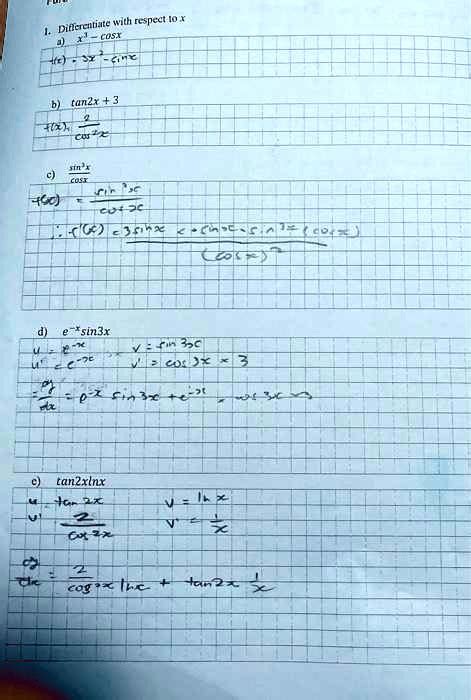 1. Differentiate with respect to x
a) x³ − cosx
f(x) = 3x² - sinx
b) tan2x + 3
f(x), 2
cos²x
c) sin³x
cosx
f(x) = sin³x
cosx
∴ f'(x)
(cosx)²
d) e⁻ˣsin3x
u = e⁻ˣ v = sin 3x
u' = e⁻ˣ v' = cos 3x × 3
= dy/dx = e⁻ˣ sin 3x + e⁻ˣ . cos 3x
e) tan2xlnx
u = tan 2x v = ln x
u' 2/cos 2x v' = 1/x
dy/dx = 2/cos²x lnx + tan2x 1/x